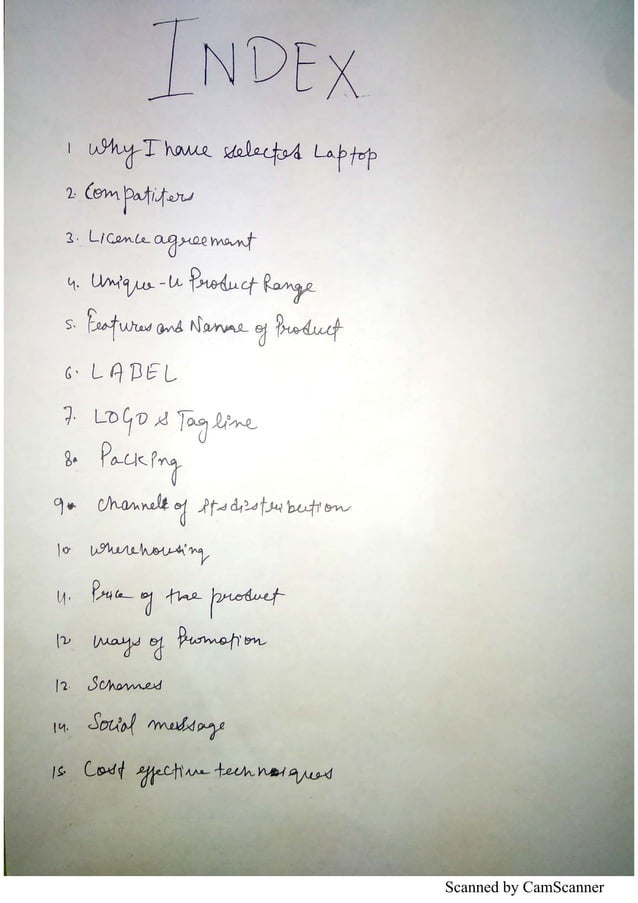 INDEX
1 Why I have selected Laptop
2. Compatiters
3. Licence agreement
4. Unique-U Product Range
5. Features and Name of Product
6. LABEL
7. LOGO & Tagline
8. Packing
9. Channels of Its distribution
10 wherehousing
11. Price of the product
12 ways of Promotion
12 Schemes
14. Social message
15. Cost effective techniques
Scanned by CamScanner